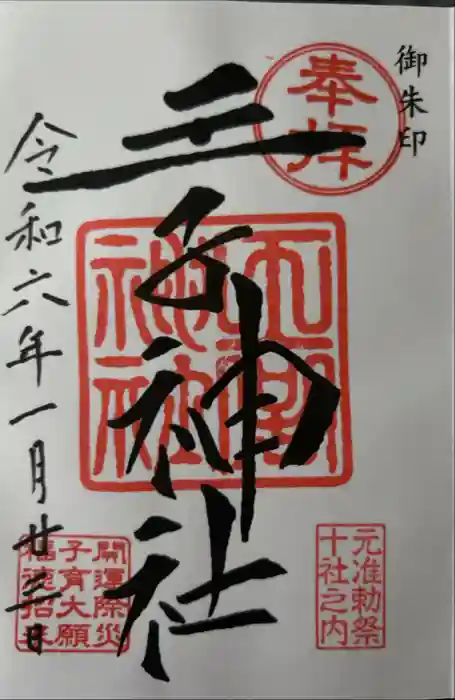 御朱印
奉拝
元准勅祭
十社之内
王子神社
神社
開運除災
子育大願
福徳招来
令和六年一月廿三日